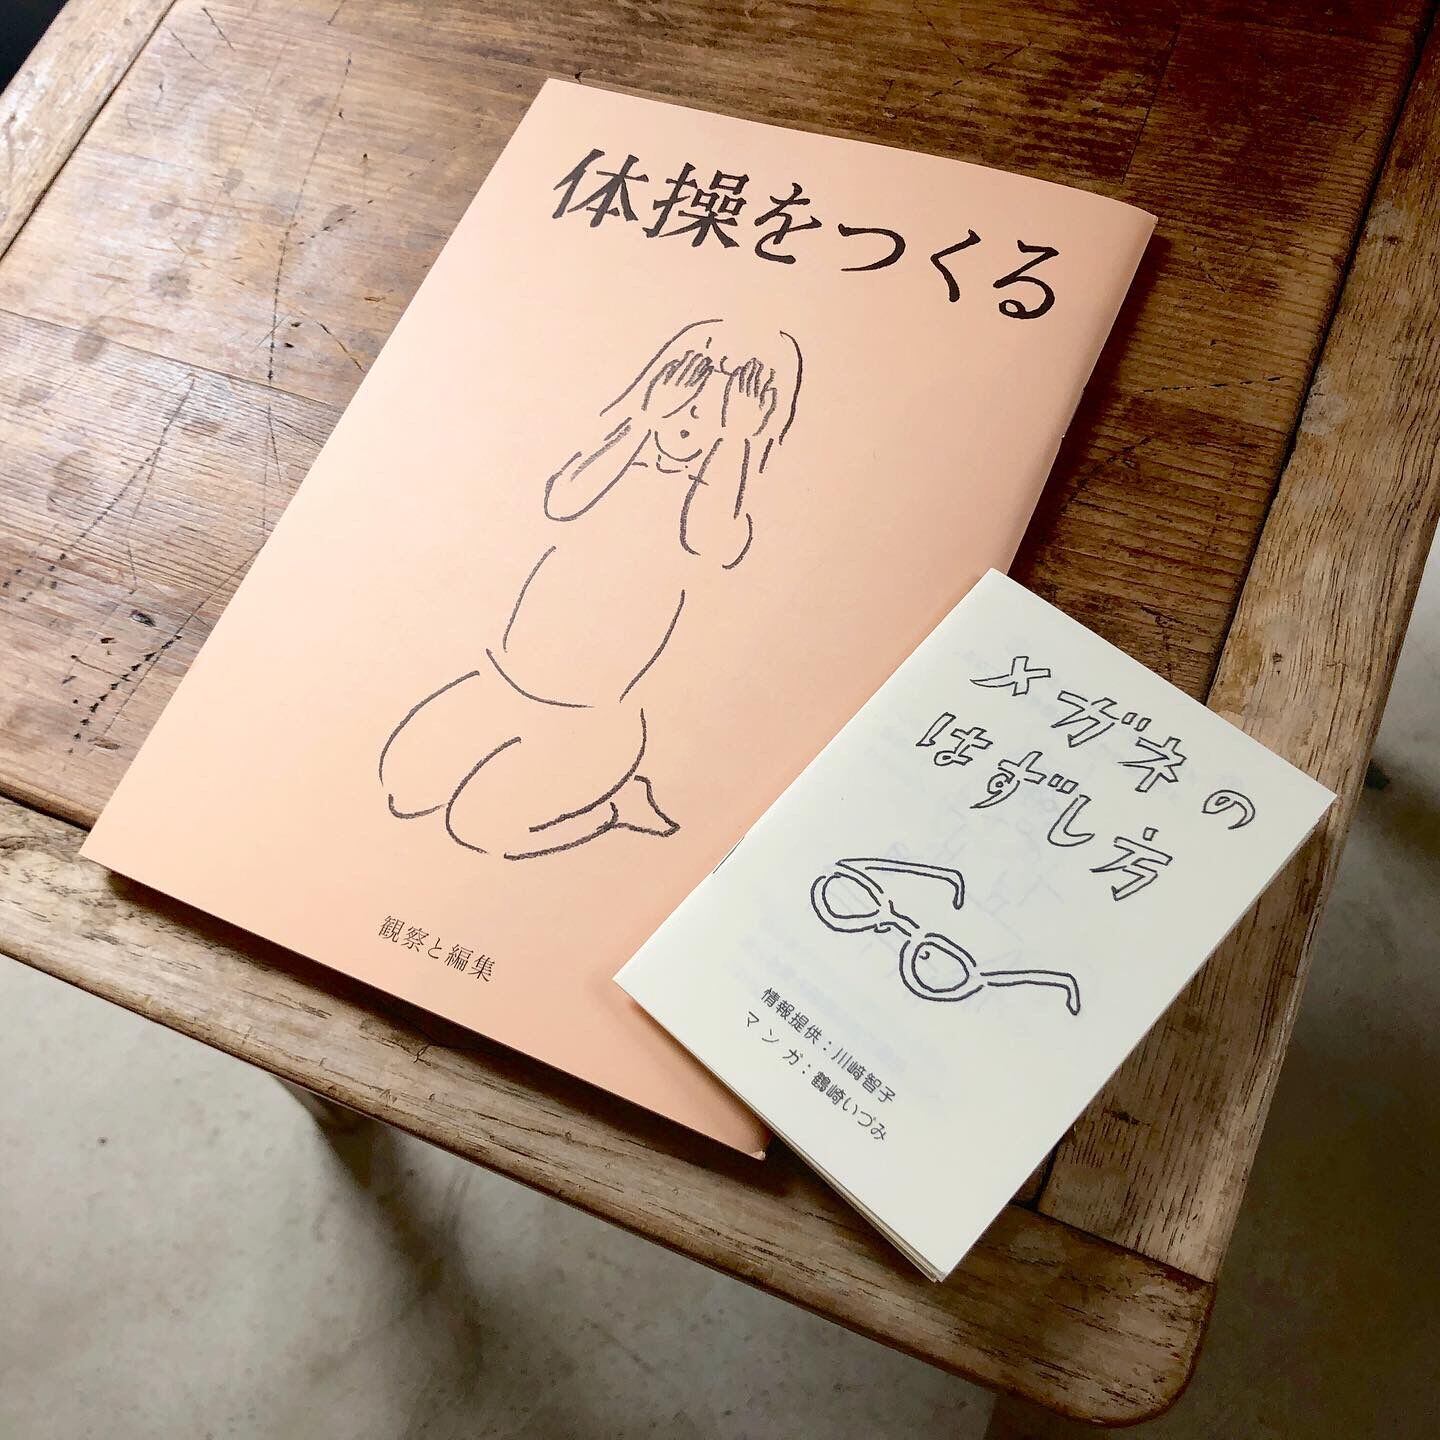 体操をつくる
観察と編集
メガネの
はずし方
情報提供：川﨑智子
マンガ：鶴崎いづみ